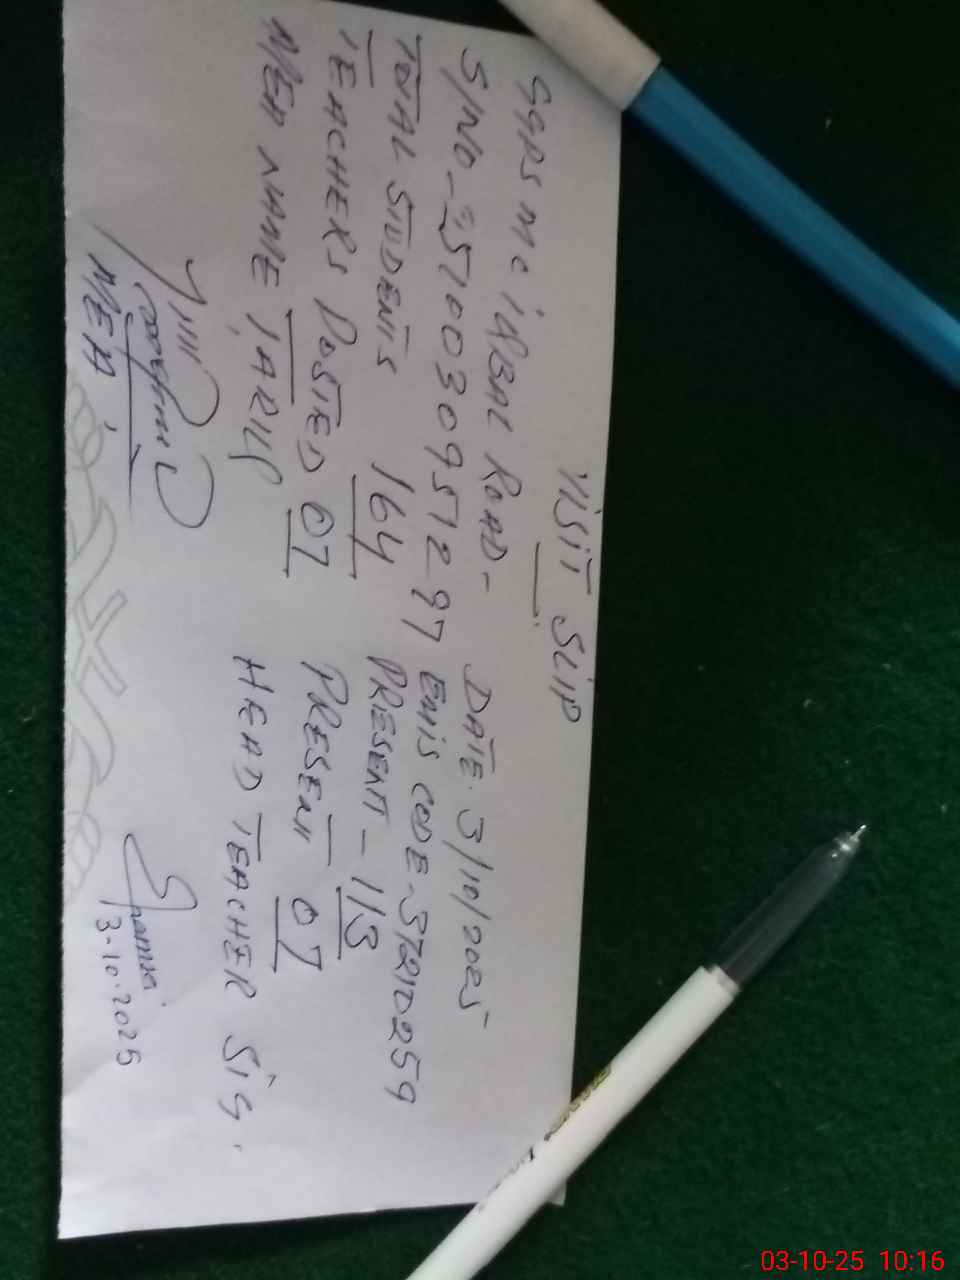 VISIT SLIP
GGPS MC iQBAL ROAD- DATE. 3/10/2025
S/NO - 570030957297 EMIS CODE-37210259
TOTAL STUDENTS 164 PRESENT - 113
TEACHERS POSTED 07 PRESENT 07
MEA NAME TARIQ HEAD TEACHER SIG.
MEA
3-10-2025
03-10-25 10:16